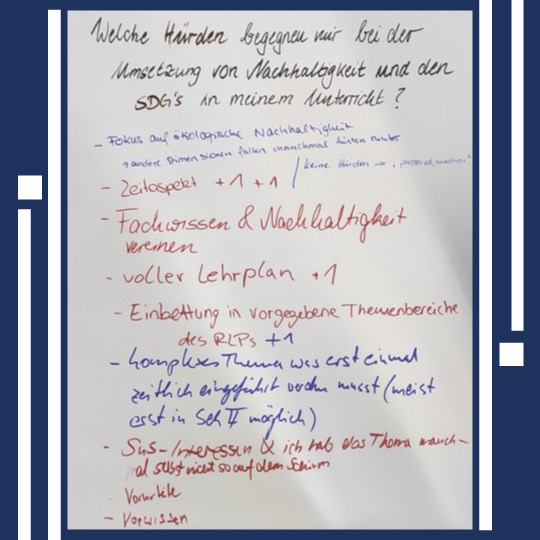 Welche Hürden begegnen mir bei der
Umsetzung von Nachhaltigkeit und den
SDG's in meinem Unterricht?
- Fokus auf ökologische Nachhaltigkeit
→ andere Dimensionen fallen manchmal hinten runter
keine Hürden → "passend machen"
- Zeitaspekt +1 +1
- Fachwissen & Nachhaltigkeit
vereinen
- voller Lehrplan +1
- Einbettung in vorgegebene Themenbereiche
des RLPs +1
- komplexes Thema was erst einmal
zeitlich eingeführt werden musst (meist
erst in Sek II möglich)
- SuS-Interessen & ich hab das Thema manch-
mal selbst nicht so auf dem Schirm
- Vorurteile
- Vorwissen